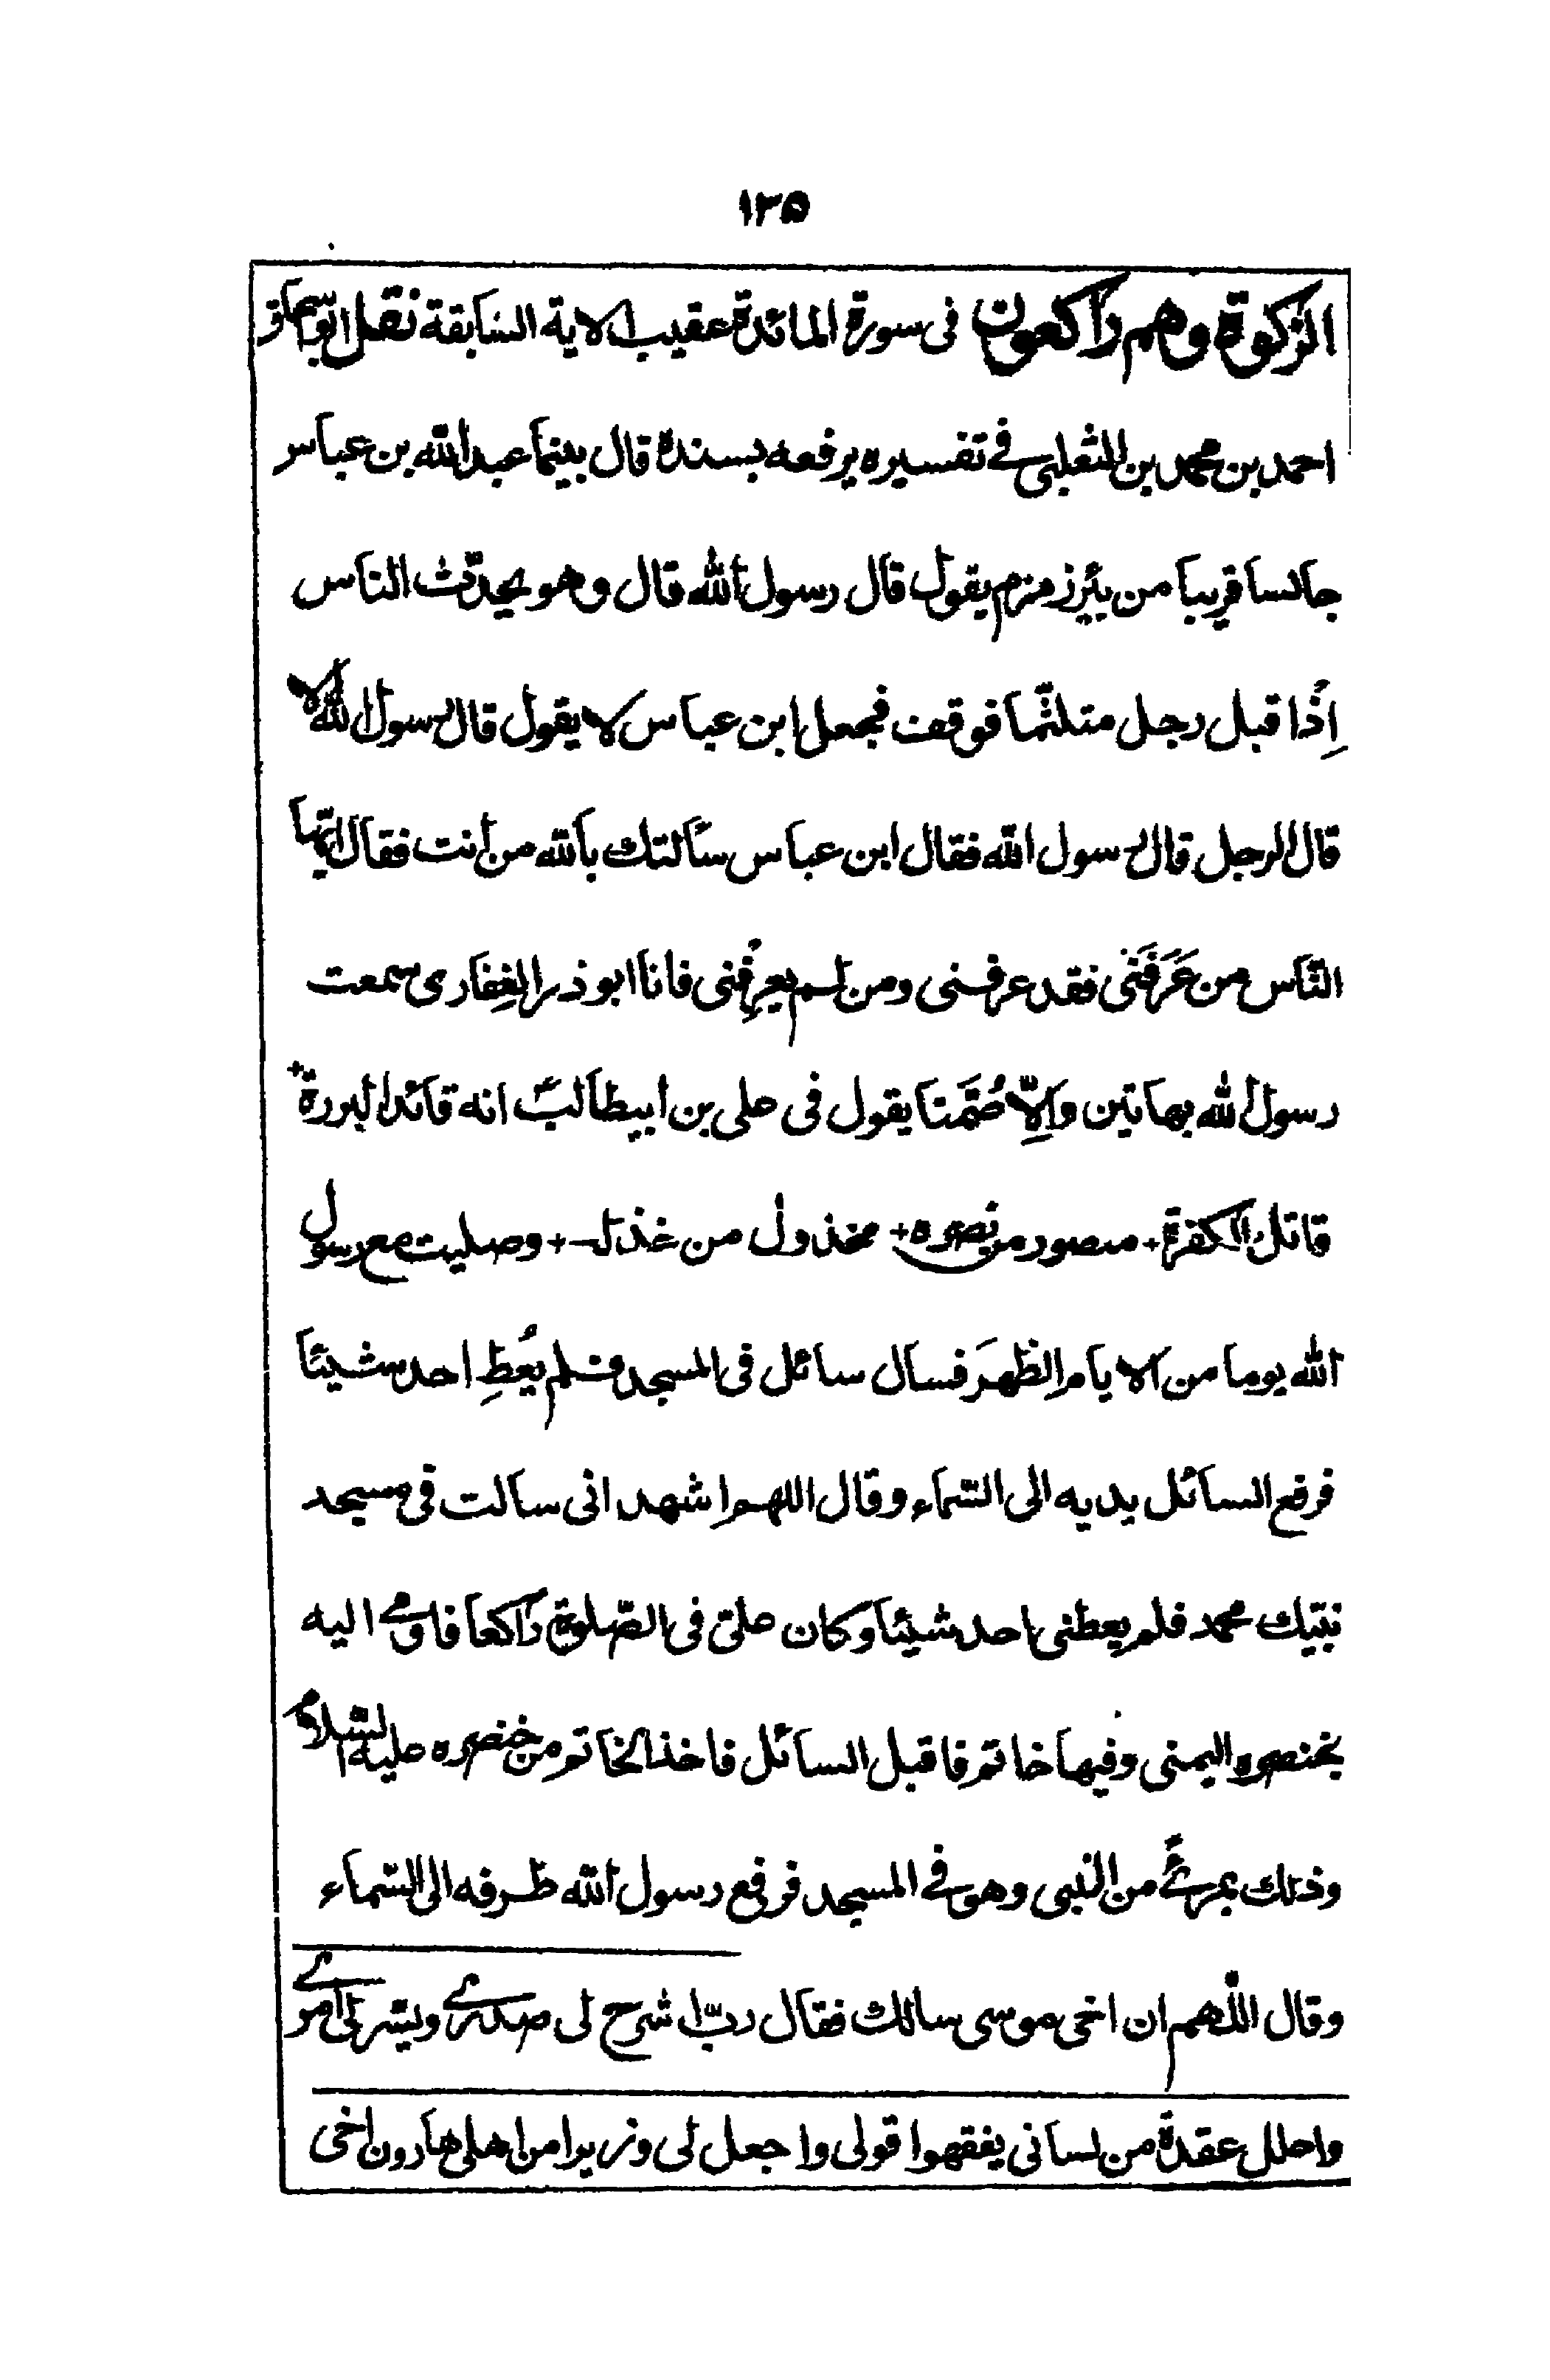 ۱۳۵
الزكوة وهم راكعون فى سورة المائدة عقيب الاية السابقة نقل ابو اسحاق
احمد بن محمد بن الثعلبى فے تفسيره يرفعه بسنده قال بينما عبد الله بن عباس
جالسا قريبا من بئر زمزم يقول قال رسول الله قال وهو يحدّث الناس
اِذا قبل رجل متلثّما فوقف فجعل ابن عباس لا يقول قال رسول الله الا
قال الرجل قال رسول الله فقال ابن عباس سألتك بالله من أنت فقال ايّها
النّاس من عَرَفَنى فقد عرفنى ومن لم يعرِفْنى فانا ابو ذر الغِفارى سمعت
رسول الله بهاتين واِلّا صُمَّتا يقول فى على بن ابيطالبؑ انه قائد البررة+
قاتل الكفرة+ منصور من نصره+ مخذول من خذله+ وصليت مع رسول
الله يوما من الايام الظهرَ فسال سائل فى المسجد فلم يُعطِ احد شيئا
فرفع السائل يديه الى السّماء وقال اللهم اشهد انى سالت فى مسجد
نبيّك محمد فلم يعطنى احد شيئا وكان علىّ فى الصّلوة راكعا فاومے اليه
بخنصره اليمنى وفيها خاتم فاقبل السائل فاخذ الخاتم من خنصره عليه السّلام
وذلك بمرئے من النبى وهو فے المسجد فرفع رسول الله طرفه الى السّماء
وقال اللّهم ان اخى موسى سالك فقال ربّ اشرح لى صدرے ويسّر لى امرے
واحلل عقدة من لسانى يفقهوا قولى واجعل لى وزيرا من اهلى هارون اخى